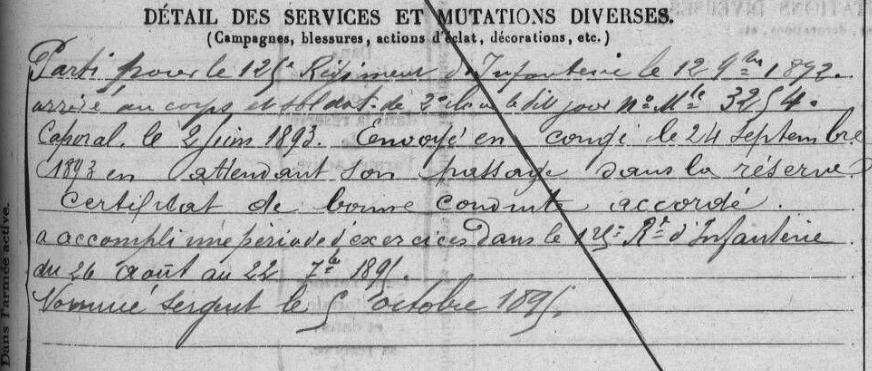 DÉTAIL DES SERVICES ET MUTATIONS DIVERSES.
(Campagnes, blessures, actions d'éclat, décorations, etc.)
Parti pour le 125e Régiment d'Infanterie le 12 9bre 1892.
arrivé au corps et soldat de 2e classe le dit jour no Mle 3254.
Caporal le 2 juin 1893. Envoyé en congé le 24 septembre
1893 en attendant son passage dans la réserve
Certificat de bonne conduite accordé.
a accompli une période d'exercices dans le 125e Rt d'Infanterie
du 26 août au 22 7bre 1895.
Nommé sergent le 5 octobre 1895.
Dans l'armée active.